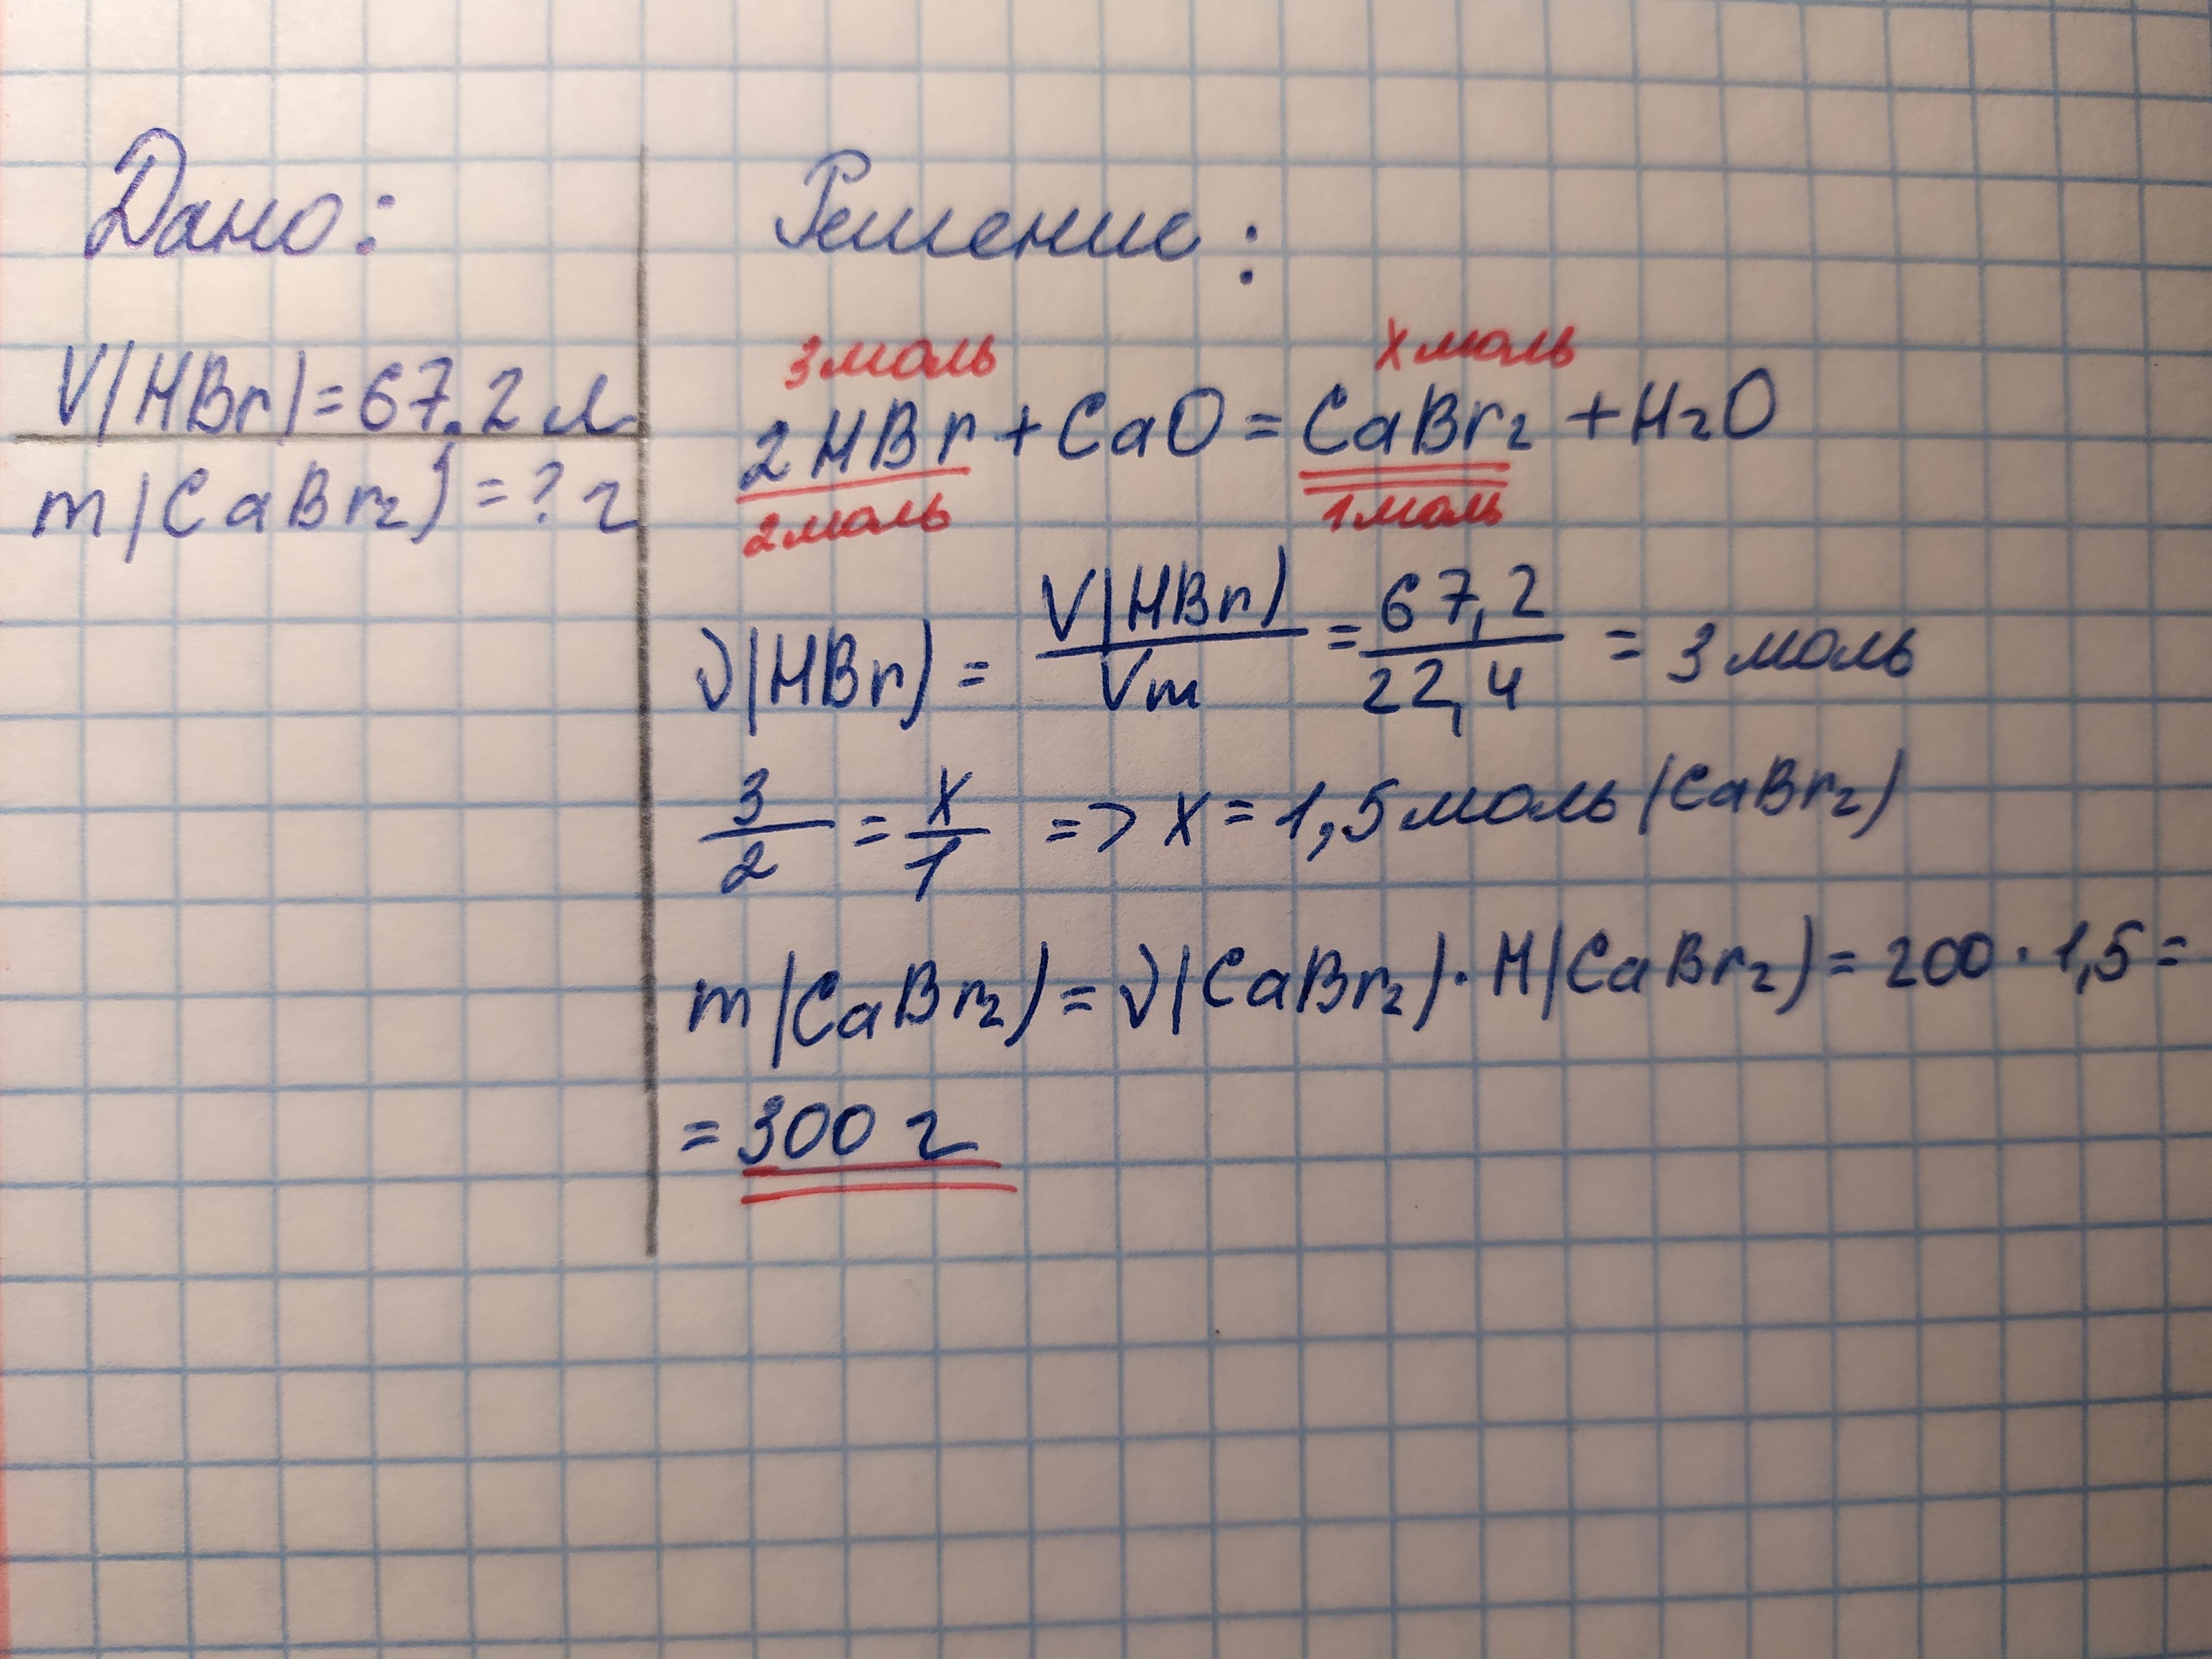 Дано:
V(HBr)=67,2 л
m(CaBr₂)=? г
Решение:
3моль хмоль
2HBr+CaO=CaBr₂+H₂O
2моль 1моль
ν(HBr)= V(HBr)/Vm = 67,2/22,4 = 3 моль
3/2 = x/1 => x = 1,5моль(CaBr₂)
m(CaBr₂)=ν(CaBr₂)·M(CaBr₂)=200·1,5=
=300 г